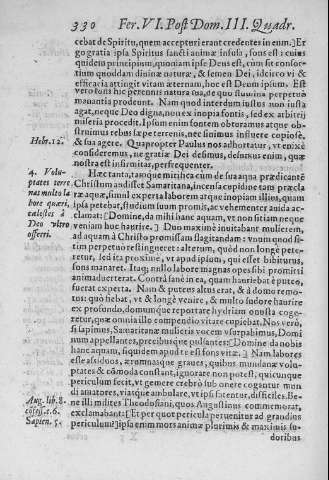 330 Fer. VI. Post Dom. III. Quadr.
cebat de Spiritu, quem accepturi erant credentes in eum.] Er
go gratia ipsa Spiritus sancti animæ insusa, fons est: cuius
quidem principium, quoniam ipse Deus est, cum sit consor-
tium quoddam diuinæ naturæ, & semen Dei, idcirco vi &
efficacia attingit vitam æternam, hoc est Deum ipsum. Est
vero fons hic perennis natura sua, de quo flumina perpetuò
manantia prodeunt. Nam quod interdum iustus non iusta
agat, neque Deo digna, non ex inopia fontis, sed ex arbitrij
miseria procedit. Ipsum enim fontem obturamus atque ob-
struimus rebus sæpe terrenis, nec sinimus influere copiosè,
Hebr. 12.
& sua agere. Quapropter Paulus nos adhortatur, vt enixè
consideremus, ne gratiæ Dei desimus, defuturus enim, quæ
nostra est infirmitas, perfrequenter.
4. Volu-
ptates terre
nas multo la
bore quæri,
cælestes à
Deo vltro
offerri.
Hæc tanta, tamque mirifica cùm de sua aqua prædicantẽ
Christum audisset Samaritana, incensa cupidine tam præcla
ræ aquæ, simul exhorrens laborem atque inopiam illius, quam
ipsa petebat, studium suum promit, ac vehementer auida ac-
clamat: [Domine, da mihi hanc aquam, vt non sitiam neque
veniam huc haurire.] Duo maximè inuitabant mulierem,
ad aquam à Christo promissam flagitandam: vnum quod si-
tim perpetuò restingueret: alterum, quòd non longè pete-
retur, sed ita proximè, vt apud ipsum, qui esset bibiturus,
fons manaret. Itaq; nullo labore magnas opes sibi promitti
animaduerterat. Contrà sanè in ea, quam hauriebat è puteo,
fuerat experta. Nam & puteus altus erat, & à domo remo-
tus: quò fiebat, vt & longè venire, & multo sudore haurire
ex profundo, domumque reportare hydriam onusta coge-
retur, quæ omnia illo compendio vitare cupiebat. Nos verò,
si sapimus, Samaritanæ mulieris vocem vsurpabimus, Domi
num appellantes, precibusque pulsantes: [Domine da nobis
hanc aquam, siquidem apud te est fons vitæ.] Nam labores
esse assiduos, ærumnasque graues, quibus mundanæ volu-
ptates & cõmoda constant, ignorare non potest, quicunque
periculum fecit, vt gemere crebrò sub onere cogantur mun
di amatores, viasque ambulare, vt ipsi fatentur, difficiles. Be-
Aug. lib. 8.
cõfess. c. 6.
Sapien. 5.
ne illi milites Theodosiani, quos Augustinus commemorat,
exclamabant: [Et per quot pericula peruenitur ad grandius
periculum?] ipsa enim mors animæ plurimis & maximis su-
doribus